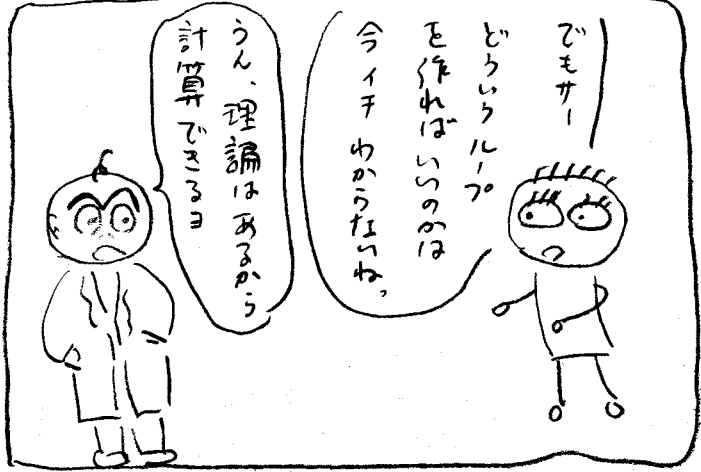 でもサー
どういうループ
を作ればいいのかは
今イチわからないね。
うん、理論はあるから
計算できるヨ